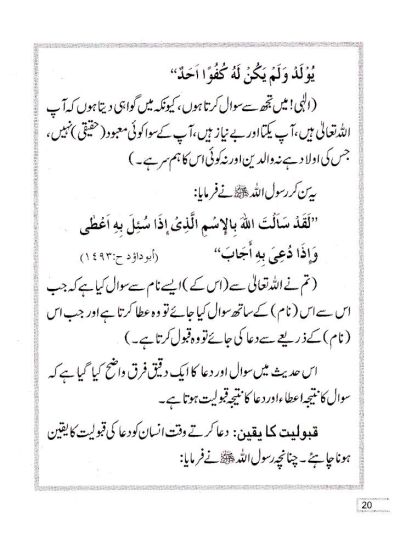 يُوْلَدْ وَلَمْ يَكُنْ لَهُ كُفُوًا اَحَدٌ“
(الٰہی! میں تجھ سے سوال کرتا ہوں، کیونکہ میں گواہی دیتا ہوں کہ آپ
اللہ تعالیٰ ہیں، آپ یکتا اور بے نیاز ہیں، آپ کے سوا کوئی معبود (حقیقی) نہیں،
جس کی اولاد ہے نہ والدین اور نہ کوئی اس کا ہم سر ہے۔)
یہ سن کر رسول اللہ ﷺ نے فرمایا:
”لَقَدْ سَاَلْتَ اللّٰهَ بِالْاِسْمِ الَّذِىْ اِذَا سُئِلَ بِهِ اَعْطٰى
وَاِذَا دُعِىَ بِهِ اَجَابَ“ (ابوداؤد ح: ۱۴۹۳)
(تم نے اللہ تعالیٰ سے (اس کے) ایسے نام سے سوال کیا ہے کہ جب
اس سے اس (نام) کے ساتھ سوال کیا جائے تو وہ عطا کرتا ہے اور جب اس
(نام) کے ذریعے سے دعا کی جائے تو وہ قبول کرتا ہے۔)
اس حدیث میں سوال اور دعا کا ایک دقیق فرق واضح کیا گیا ہے کہ
سوال کا نتیجہ اعطاء اور دعا کا نتیجہ قبولیت ہوتا ہے۔
قبولیت کا یقین: دعا کرتے وقت انسان کو دعا کی قبولیت کا یقین
ہونا چاہئے۔ چنانچہ رسول اللہ ﷺ نے فرمایا:
20